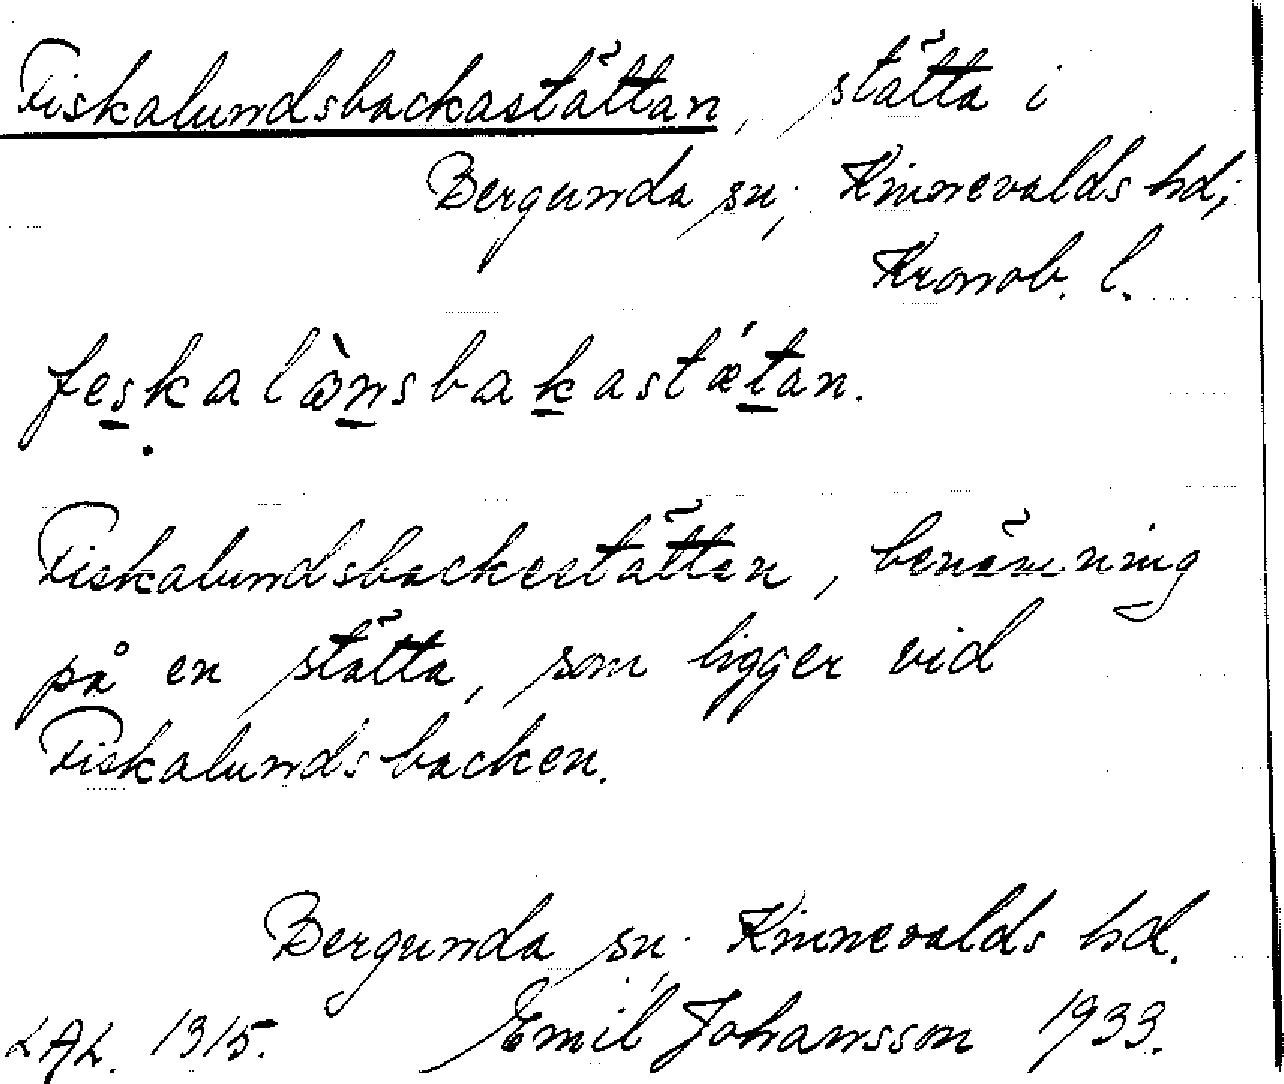 Fiskalundsbackastättan, stätta i
Bergunda sn; Kinnevalds hd;
Kronob. l.
feskalånsbakastætan.
Fiskalundsbackestättan, benämning
på en stätta, som ligger vid
Fiskalundsbacken.
Bergunda sn; Kinnevalds hd.
LAL. 1315. Emil Johansson 1933.